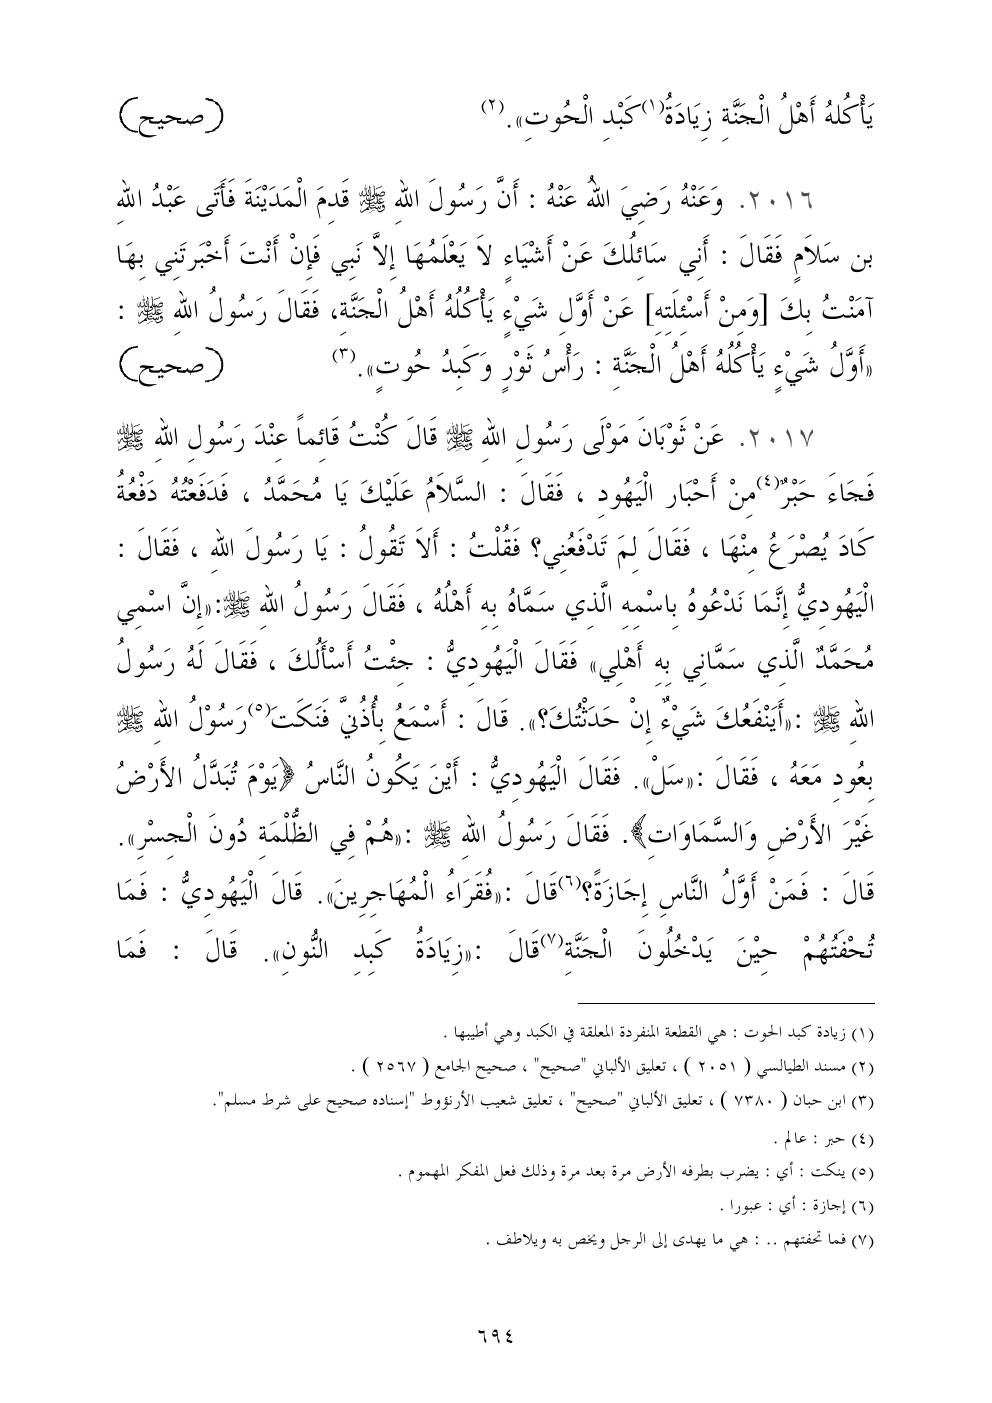 يَأْكُلهُ أَهْلُ الْجَنَّةِ زِيَادَةُ(١)كَبْدِ الْحُوتِ».(٢) (صحيح)
٢٠١٦. وَعَنْهُ رَضِيَ اللهُ عَنْهُ : أَنَّ رَسُولَ اللهِ ﷺ قَدِمَ الْمَدَيْنَةَ فَأَتَى عَبْدُ اللهِ
بن سَلاَمٍ فَقَالَ : أَنِي سَائِلُكَ عَنْ أَشْيَاءٍ لاَ يَعْلَمُهَا إِلاَّ نَبِي فَإِنْ أَنْتَ أَخْبَرتَنِي بِهَا
آمَنْتُ بِكَ [وَمِنْ أَسْئِلَتِهِ] عَنْ أَوَّلِ شَيْءٍ يَأْكُلُهُ أَهْلُ الْجَنَّةِ، فَقَالَ رَسُولُ اللهِ ﷺ :
«أَوَّلُ شَيْءٍ يَأْكُلُهُ أَهْلُ الْجَنَّةِ : رَأْسُ ثَوْرٍ وَكَبِدُ حُوتٍ».(٣) (صحيح)
٢٠١٧. عَنْ ثَوْبَانَ مَوْلَى رَسُولِ اللهِ ﷺ قَالَ كُنْتُ قَائِماً عِنْدَ رَسُولِ اللهِ ﷺ
فَجَاءَ حَبْرٌ(٤)مِنْ أَحْبَارِ الْيَهُودِ ، فَقَالَ : السَّلاَمُ عَلَيْكَ يَا مُحَمَّدُ ، فَدَفَعْتُهُ دَفْعُةُ
كَادَ يُصْرَعُ مِنْهَا ، فَقَالَ لِمَ تَدْفَعُنِي؟ فَقُلْتُ : أَلاَ تَقُولُ : يَا رَسُولَ اللهِ ، فَقَالَ :
الْيَهُودِيُّ إِنَّمَا نَدْعُوهُ بِاسْمِهِ الَّذِي سَمَّاهُ بِهِ أَهْلُهُ ، فَقَالَ رَسُولُ اللهِ ﷺ:«إِنَّ اسْمِي
مُحَمَّدٌ الَّذِي سَمَّانِي بِهِ أَهْلِي» فَقَالَ الْيَهُودِيُّ : جِئْتُ أَسْأَلُكَ ، فَقَالَ لَهُ رَسُولُ
اللهِ ﷺ :«أَيَنْفَعُكَ شَيْءٌ إِنْ حَدَثْتُكَ؟». قَالَ : أَسْمَعُ بِأُذُنِيَّ فَنَكَت(٥)رَسُوْلُ اللهِ ﷺ
بِعُودِ مَعَهُ ، فَقَالَ :«سَلْ». فَقَالَ الْيَهُودِيُّ : أَيْنَ يَكُونُ النَّاسُ ﴿يَوْمَ تُبَدَّلُ الأَرْضُ
غَيْرَ الأَرْضِ وَالسَّمَاوَاتِ﴾. فَقَالَ رَسُولُ اللهِ ﷺ :«هُمْ فِي الظُّلْمَةِ دُونَ الْجِسْرِ».
قَالَ : فَمَنْ أَوَّلُ النَّاسِ إِجَازَةً؟(٦)قَالَ :«فُقَرَاءُ الْمُهَاجِرِينَ». قَالَ الْيَهُودِيُّ : فَمَا
تُحْفَتُهُمْ حِيْنَ يَدْخُلُونَ الْجَنَّةِ(٧)قَالَ :«زِيَادَةُ كَبِدِ النُّونِ». قَالَ : فَمَا
(١) زيادة كبد الحوت : هي القطعة المنفردة المعلقة في الكبد وهي أطيبها .
(٢) مسند الطيالسي ( ٢٠٥١ ) ، تعليق الألباني "صحيح" ، صحيح الجامع ( ٢٥٦٧ ) .
(٣) ابن حبان ( ٧٣٨٠ ) ، تعليق الألباني "صحيح" ، تعليق شعيب الأرنؤوط "إسناده صحيح على شرط مسلم".
(٤) حبر : عالم .
(٥) ينكت : أي : يضرب بطرفه الأرض مرة بعد مرة وذلك فعل المفكر المهموم .
(٦) إجازة : أي : عبورا .
(٧) فما تحفتهم .. : هي ما يهدى إلى الرجل ويخص به ويلاطف .
٦٩٤